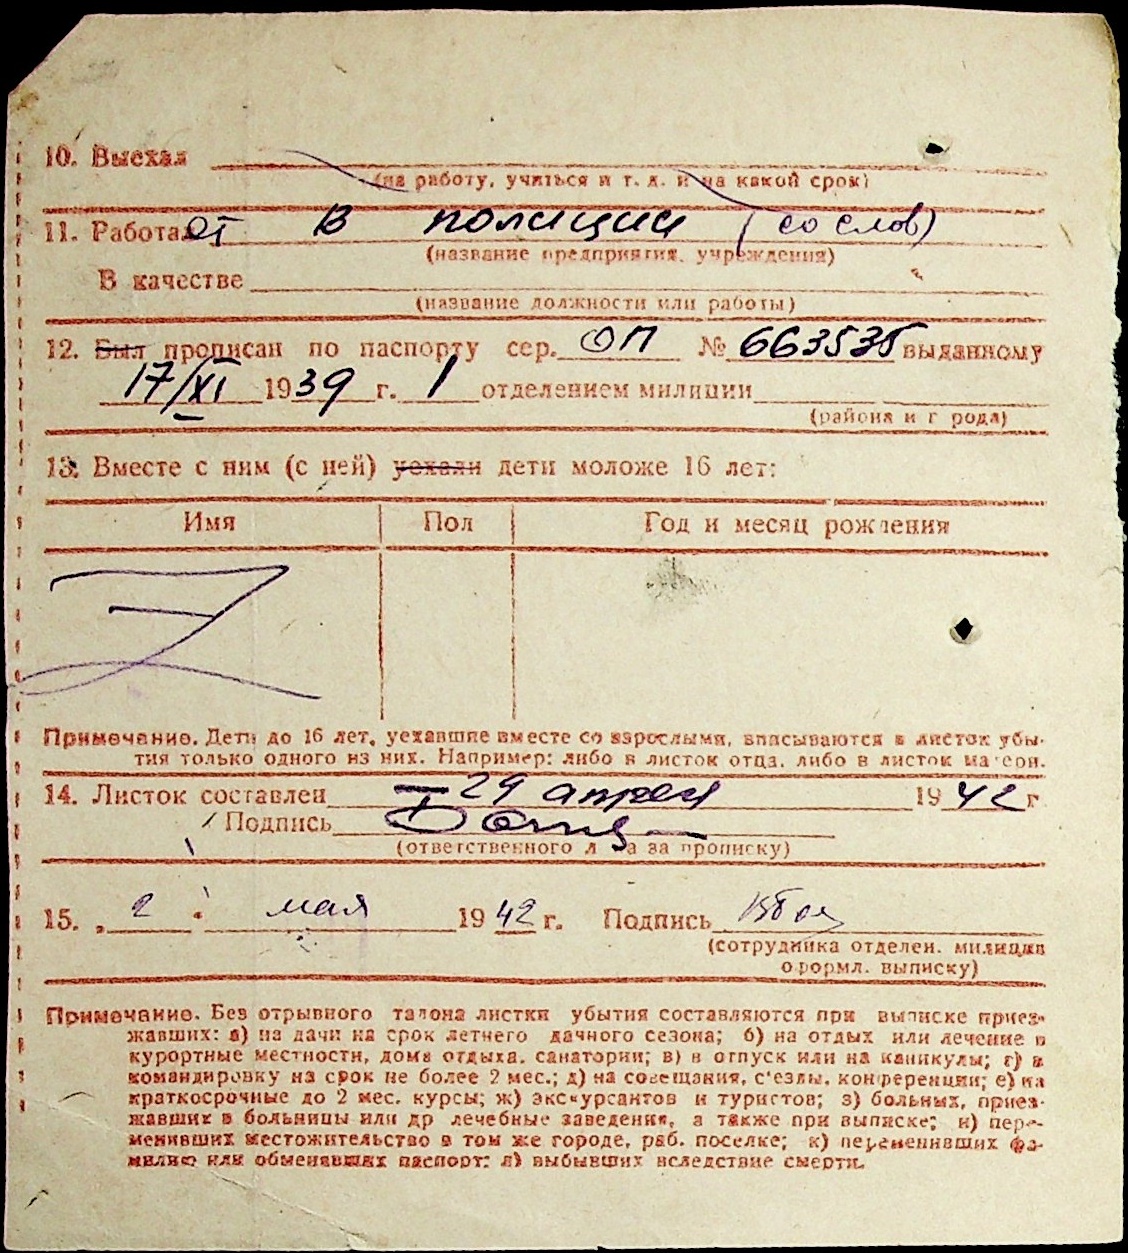 10. Выехал
(на работу, учиться и т. д. и на какой срок)
11. Работает в полиции (со слов)
(название предприятия, учреждения)
В качестве
(название должности или работы)
12. Был прописан по паспорту сер. ОП № 663535 выданному
17/XI 1939 г. 1 отделением милиции
(района и г рода)
13. Вместе с ним (с ней) уехали дети моложе 16 лет:
Имя Пол Год и месяц рождения
Z
Примечание. Дети до 16 лет, уехавшие вместе со взрослыми, вписываются в листок убы-
тия только одного из них. Например: либо в листок отца, либо в листок матери.
14. Листок составлен 29 апреля 1942 г
Подпись
(ответственного л а за прописку)
15. „2" мая 1942 г. Подпись
(сотрудника отделен. милиции
оформл. выписку)
Примечание. Без отрывного талона листки убытия составляются при выписке приез-
жавших: а) на дачи на срок летнего дачного сезона; б) на отдых или лечение в
курортные местности, дома отдыха, санатории; в) в отпуск или на каникулы; г) в
командировку на срок не более 2 мес.; д) на совещания, с'езды, конференции; е) на
краткосрочные до 2 мес. курсы; ж) экскурсантов и туристов; з) больных, приез-
жавших в больницы или др лечебные заведения, а также при выписке; и) пере-
менивших местожительство в том же городе, раб. поселке; к) переменивших фа-
милию или обменявших паспорт; л) выбывших вследствие смерти.